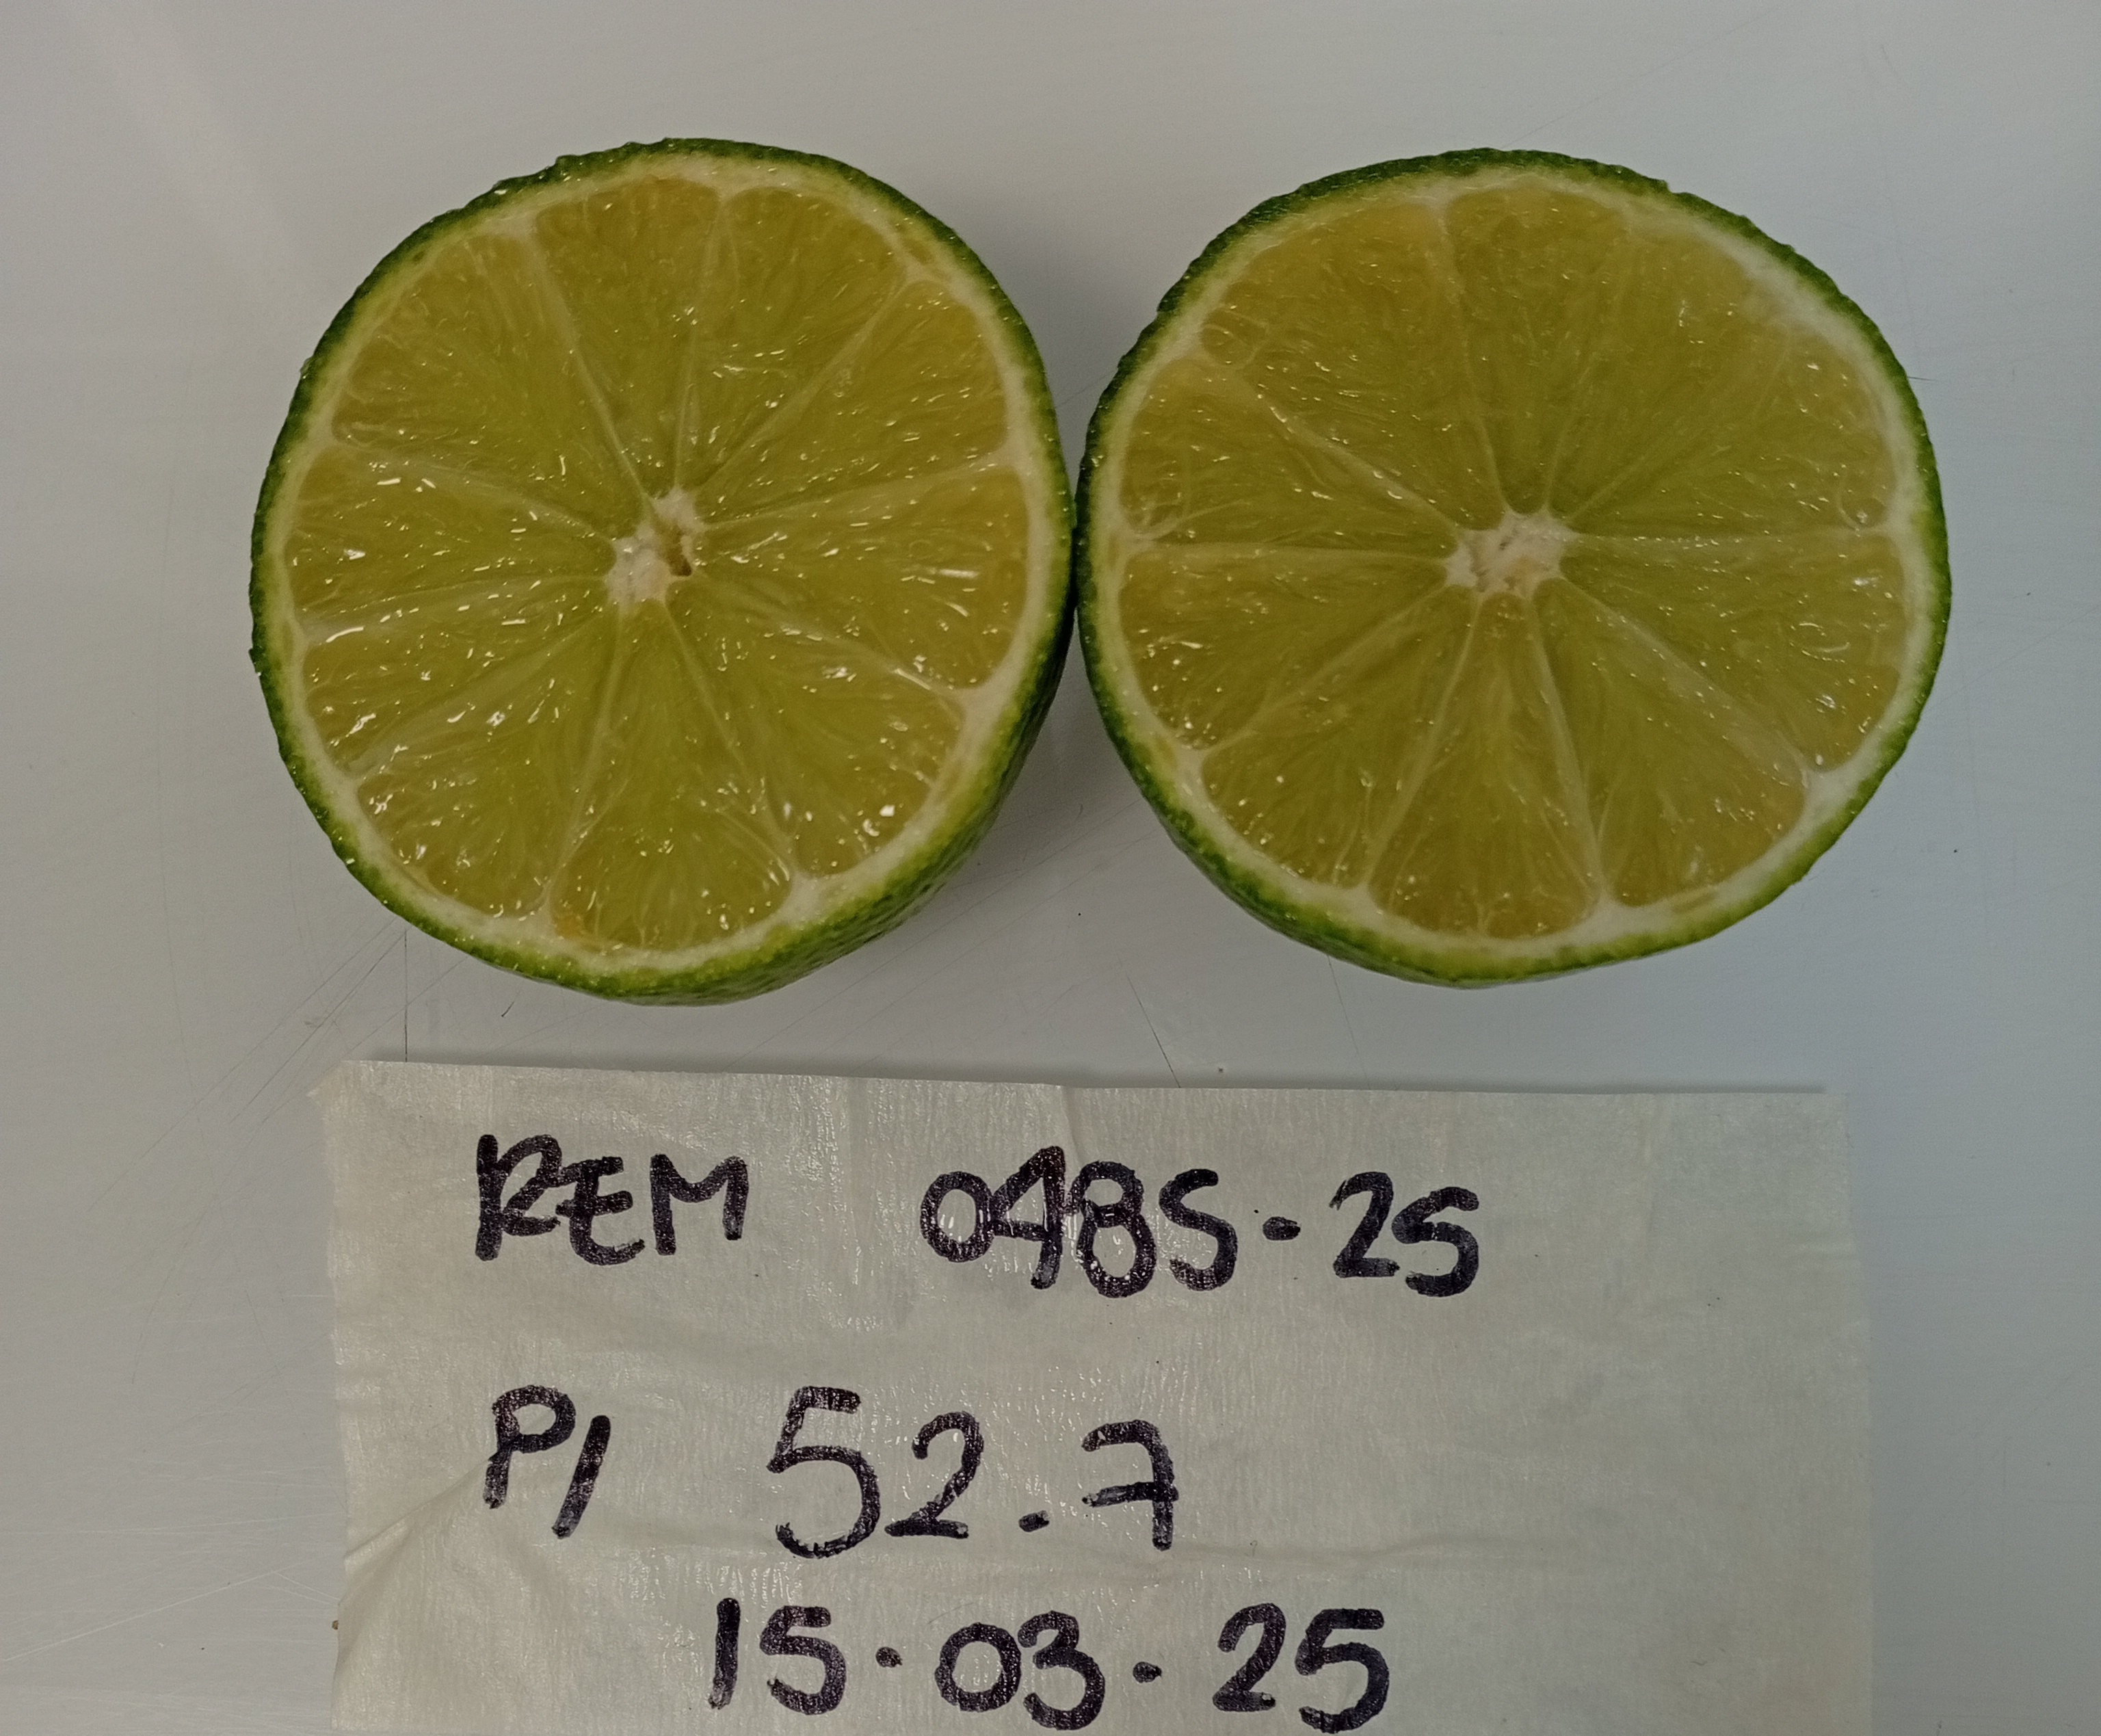 REM 0485-25
P/ 52.7
15.03.25